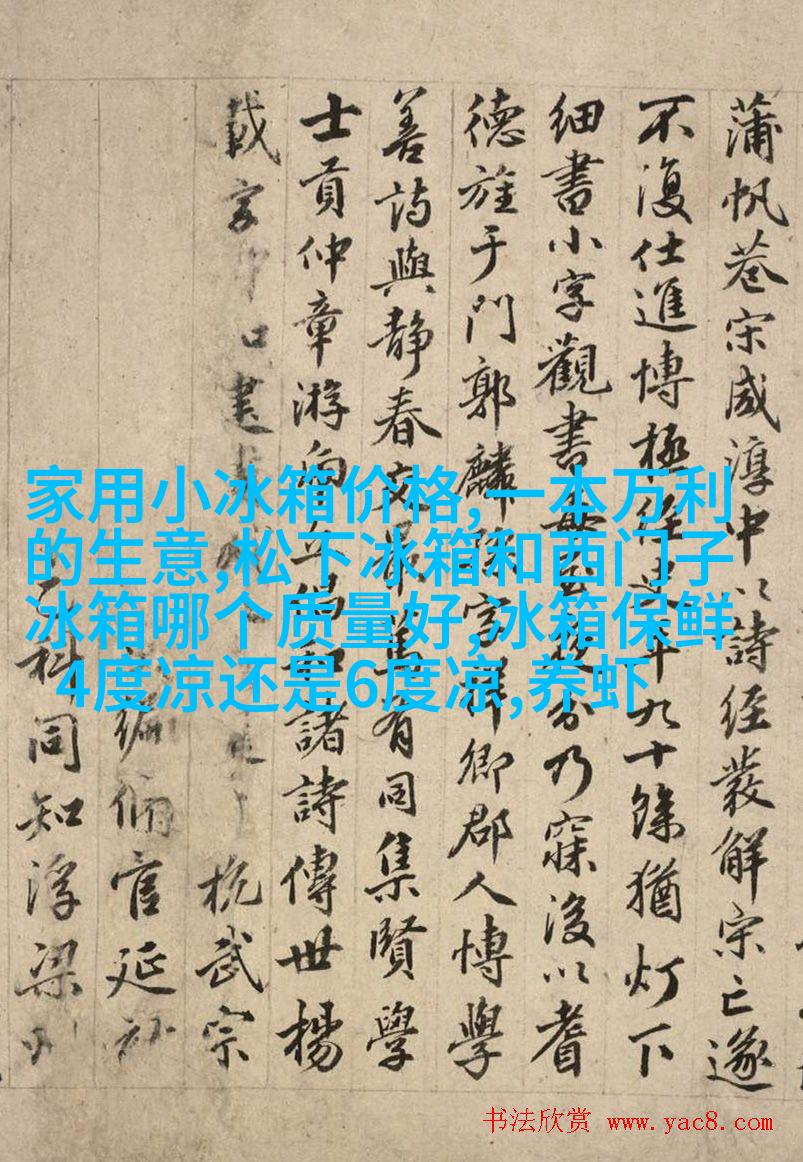 蒲帆巷宋咸淳中以詩經發解宋亡遂
不復仕進博極
年九十餘猶灯下
細書小字觀書
分乃寐後以耆
德旌于門郭麟孫字祥卿郡人博學
善詩與靜春
最
有同集賢學
士貢仲章游
諸詩傳世楊
載字
杭武宗
編脩官延祐
科同知浮梁州
家用小冰箱价格,一本万利
的生意,松下冰箱和西门子
冰箱哪个质量好,冰箱保鲜
4度凉还是6度凉,养虾
书法欣赏 www.yac8.com